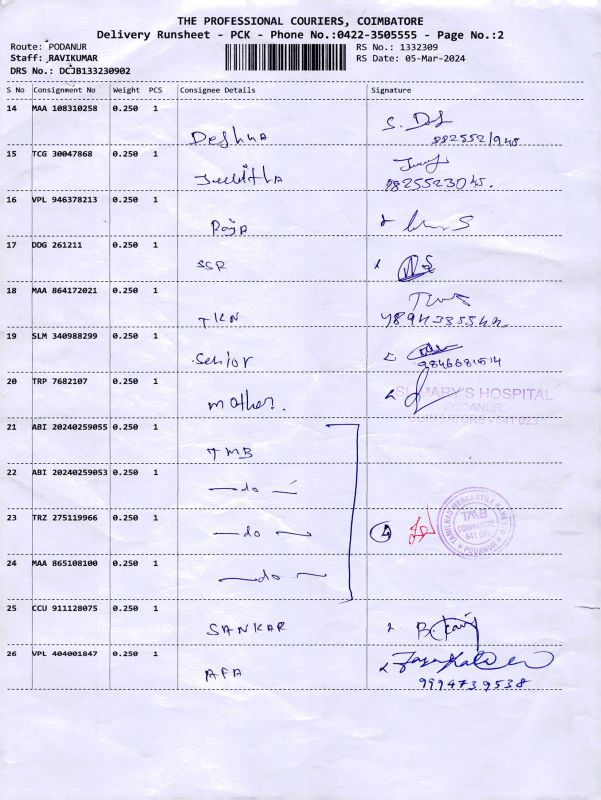 THE PROFESSIONAL COURIERS, COIMBATORE
Delivery Runsheet - PCK - Phone No.:0422-3505555 - Page No.:2
Route: PODANUR RS No.: 1332309
Staff: RAVIKUMAR RS Date: 05-Mar-2024
DRS No.: DCJB133230902
S No Consignment No Weight PCS Consignee Details Signature
14 MAA 108310258 0.250 1
Deshna
15 TCG 30047868 0.250 1
9825523045.
16 VPL 946378213 0.250 1
Raja
17 DDG 261211 0.250 1
SSR
18 MAA 864172021 0.250 1
TKN
19 SLM 340988299 0.250 1
Senior
9846681514
20 TRP 7682107 0.250 1
mother.
ST.MARY'S HOSPITAL
PODANUR
COIMBATORE - 641 023
21 ABI 20240259055 0.250 1
TMB
22 ABI 20240259053 0.250 1
—do—
23 TRZ 275119966 0.250 1
—do— 4
TAMILNAD MERCANTILE BANK
TMB
COIMBATORE
641 023
PODANUR
24 MAA 865108100 0.250 1
—do—
25 CCU 911128075 0.250 1
SANKAR
26 VPL 404001847 0.250 1
AFA
9994739538